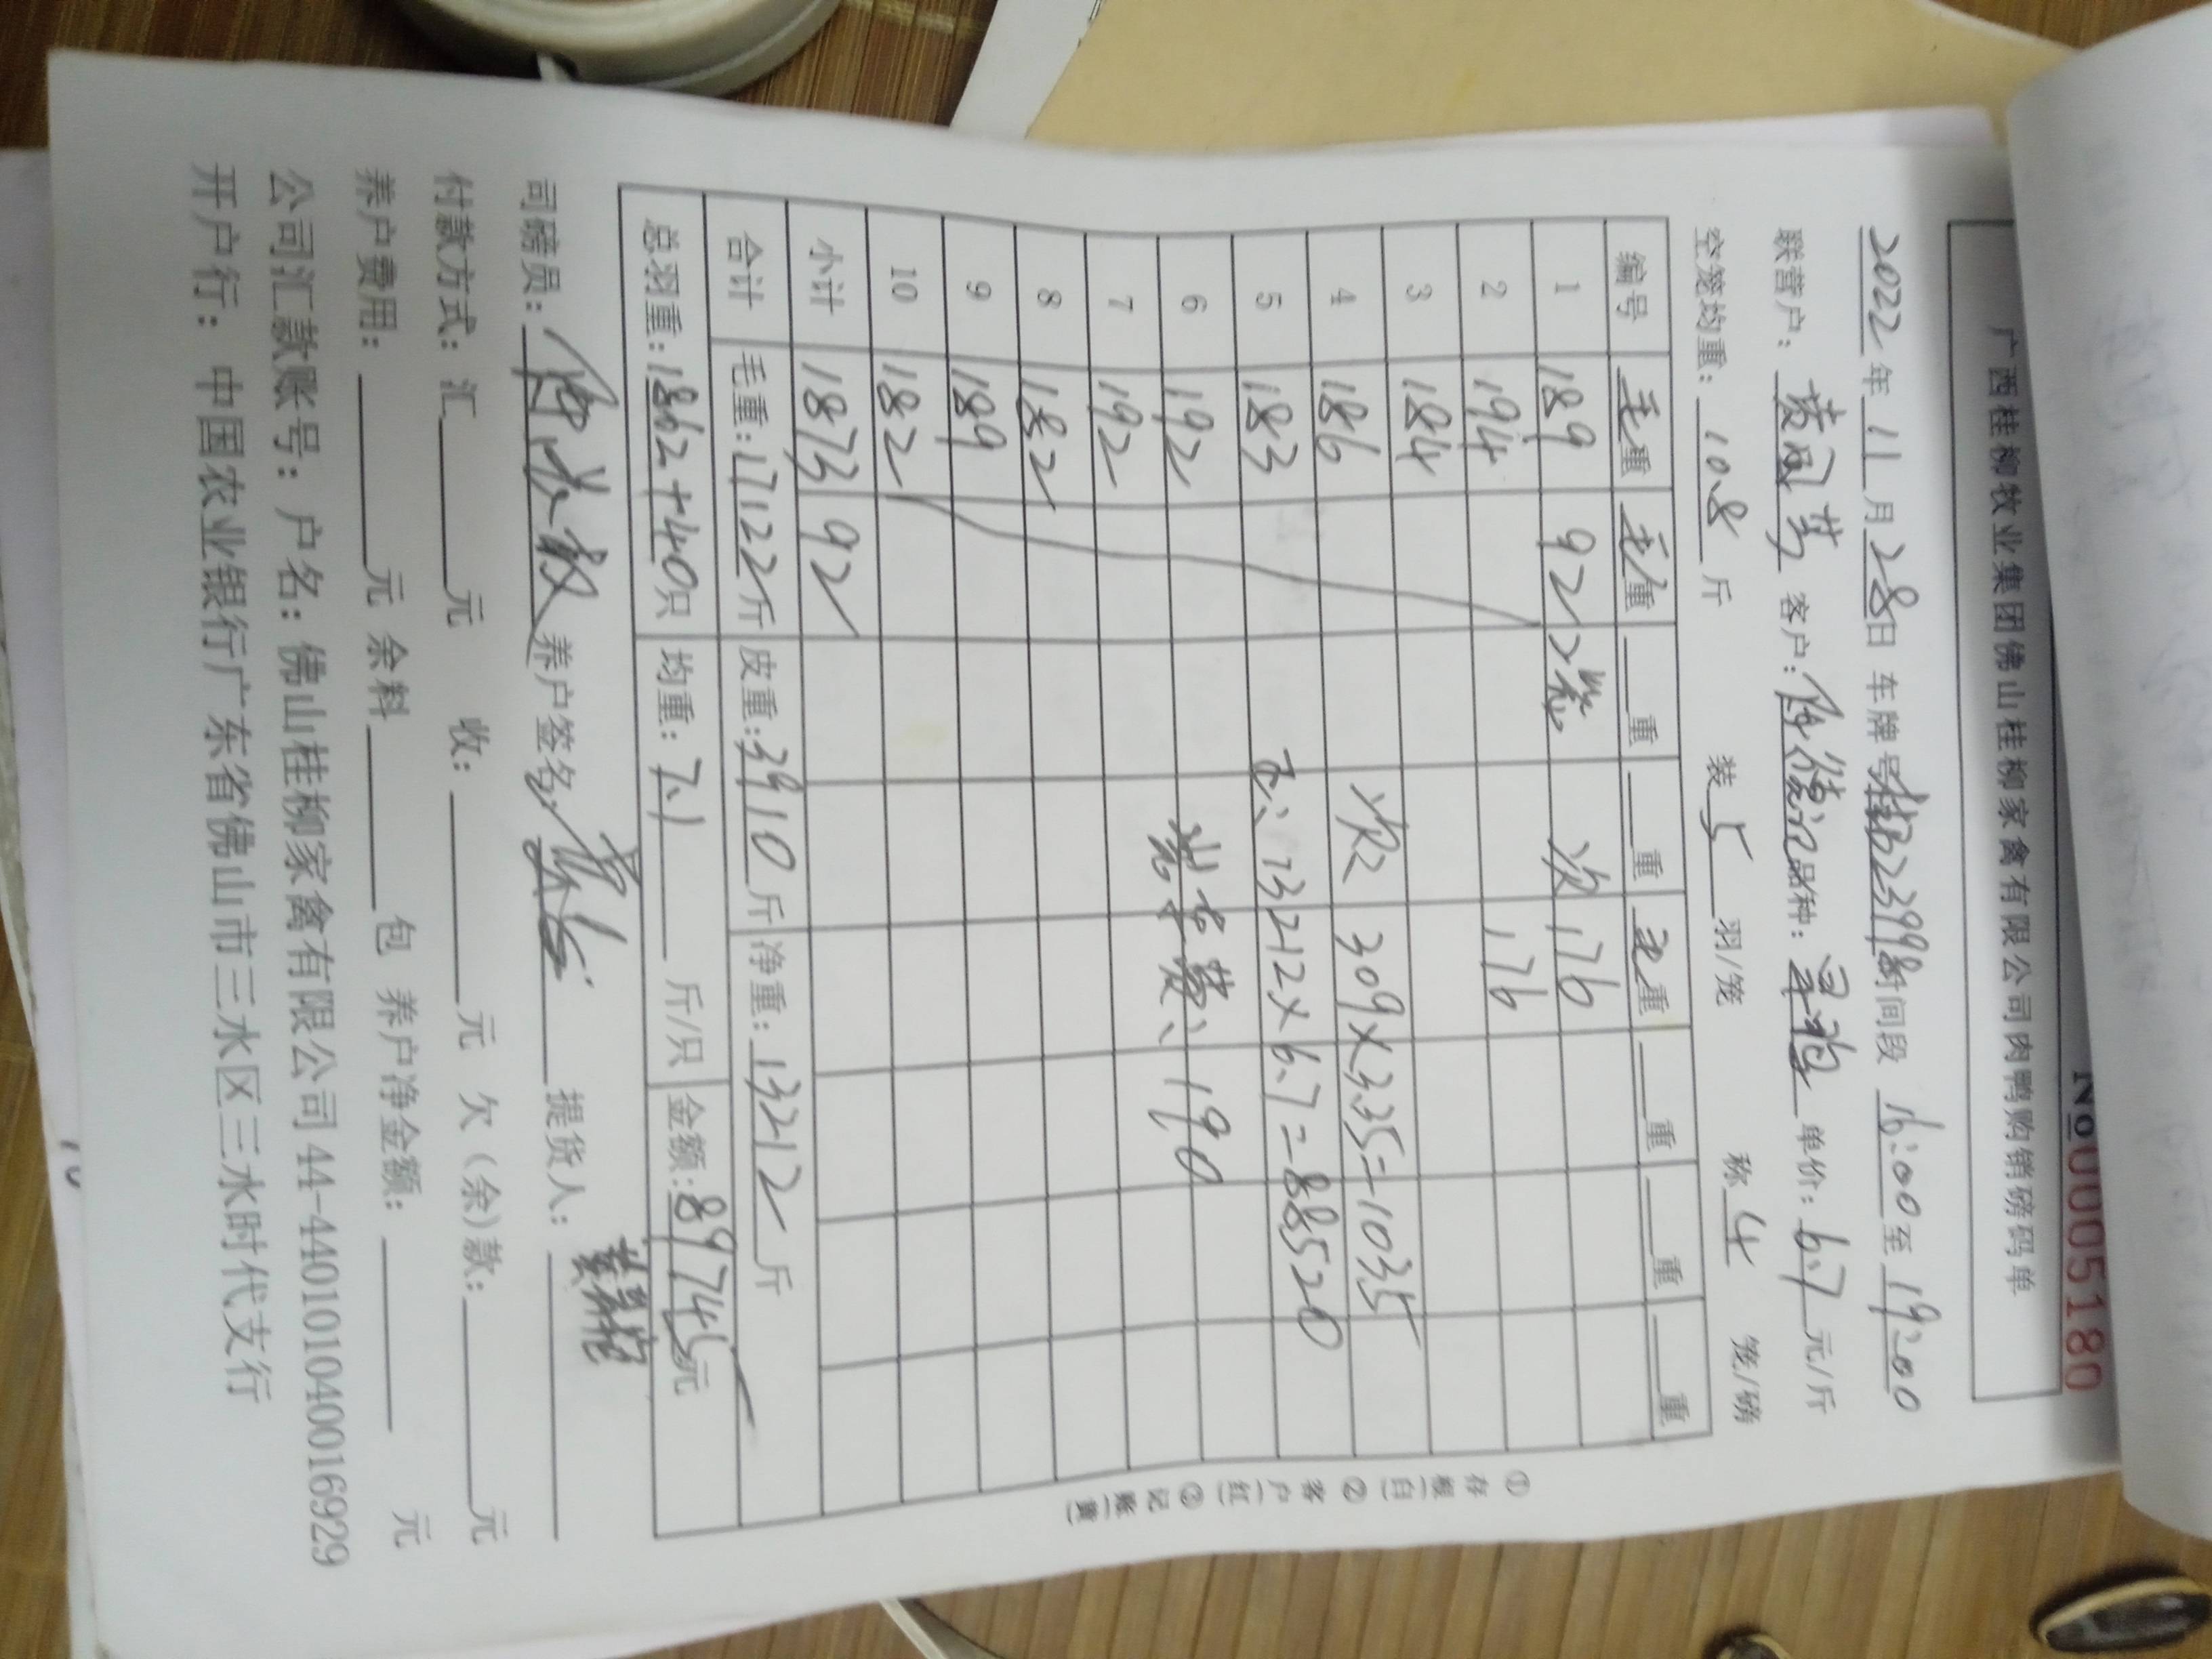 №00051180
广西桂柳牧业集团佛山桂柳家禽有限公司肉鸭购销磅码单
2022年11月28日 车牌号 23998 时间段 16:00至19:00
联营户: 黄 客户: 品种: 单价: 6.7元/斤
空笼均重: 10.8斤 装5羽/笼 称4笼/磅
编号 毛重 毛重 重 重 毛重 重 重 重
1 189 92 2笼 次 176
2 194 176
3 184
4 186 次 309×3.35=1035
5 183 正: 13212×6.7=88520
6 192 装车费: 190
7 192
8 182
9 189
10 182
小计 1873 92
合计 毛重: 17122斤 皮重: 3910斤 净重: 13212斤
总羽重: 1862+40只 均重: 7.1斤/只 金额: 89745元
司磅员: 养户签名: 提货人:
付款方式: 汇 元 收: 元 欠(余)款: 元
养户费用: 元 余料 包 养户净金额: 元
公司汇款账号: 户名: 佛山桂柳家禽有限公司 44-440101040016929
开户行: 中国农业银行广东省佛山市三水区三水时代支行
①存根(白) ②客户(红) ③记账(黄)